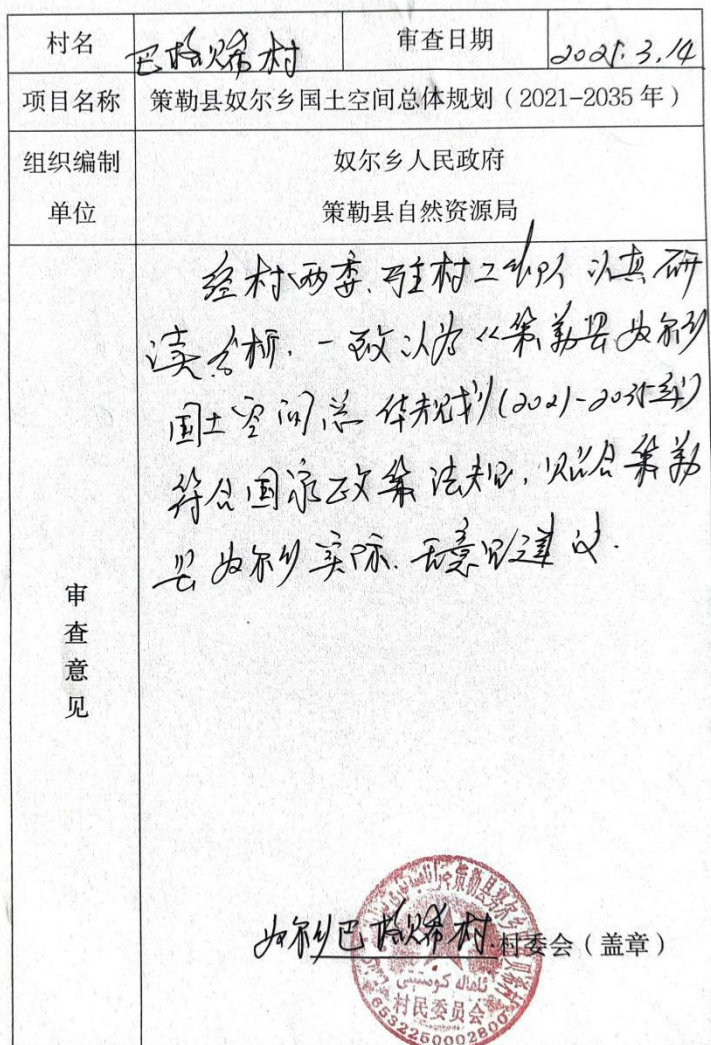 村名
巴格贝希村
审查日期
2025.3.14
项目名称
策勒县奴尔乡国土空间总体规划（2021-2035 年）
组织编制
单位
奴尔乡人民政府
策勒县自然资源局
审查意见
经村两委、驻村工作队认真研
读分析，一致认为《策勒县奴尔乡
国土空间总体规划(2021-2035年)》
符合国家政策法规，贴合策勒
县奴尔乡实际，无意见建议.
奴尔乡巴格贝希村村委会（盖章）
策勒县努尔乡
村民委员会